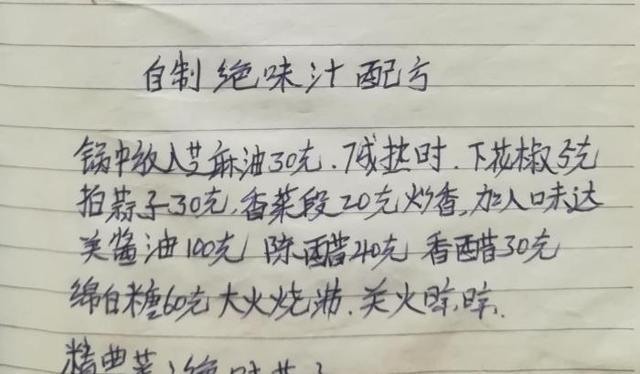 自制绝味汁配方
锅中放入芝麻油30克.7成热时.下花椒5克
拍蒜子30克,香菜段20克炒香,加入味达
美酱油100克 陈醋40克 香醋30克
绵白糖60克大火烧沸.关火晾晾.
精典菜:绝味